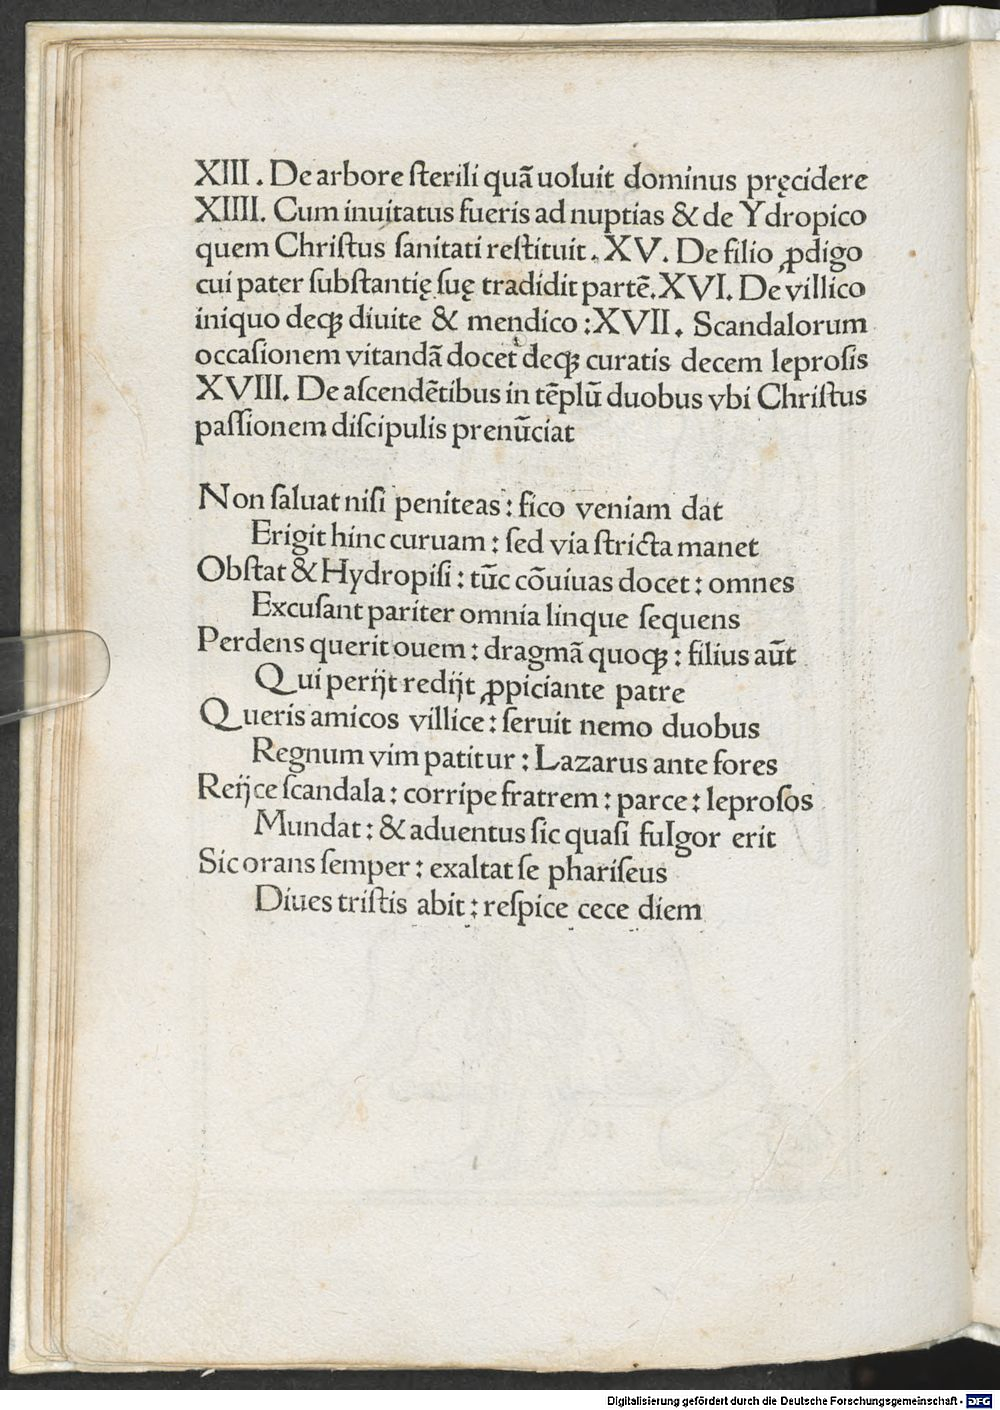 XIII. De arbore ſterili quã uoluit dominus pręcidere
XIIII. Cum inuitatus fueris ad nuptias & de Ydropico
quem Chriſtus ſanitati reſtituit. XV. De filio ꝓdigo
cui pater ſubſtantię ſuę tradidit partẽ. XVI. De villico
iniquo deqꝫ diuite & mendico : XVII. Scandalorum
occaſionem vitandã docet deqꝫ curatis decem leproſis
XVIII. De aſcendẽtibus in tẽplũ duobus vbi Chriſtus
paſſionem diſcipulis prenũciat
Non ſaluat niſi peniteas : fico veniam dat
Erigit hinc curuam : ſed via ſtricta manet
Obſtat & Hydropiſi : tũc cõuiuas docet : omnes
Excuſant pariter omnia linque ſequens
Perdens querit ouem : dragmã quoqꝫ : filius aũt
Qui perijt redijt ꝓpiciante patre
Queris amicos villice : ſeruit nemo duobus
Regnum vim patitur : Lazarus ante fores
Reijce ſcandala : corripe fratrem : parce : leproſos
Mundat : & aduentus ſic quaſi fulgor erit
Sic orans ſemper : exaltat ſe phariſeus
Diues triſtis abit : reſpice cece diem
Digitalisierung gefördert durch die Deutsche Forschungsgemeinschaft - DFG